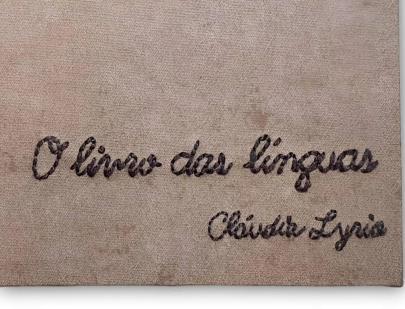 O livro das línguas
Cláudia Lyrio